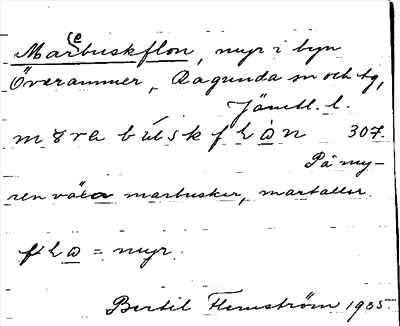 Mar(e)buskflon, myr i byn
Överammer, Ragunda sn och tg,
Jämtl. l.
mɜra búskfłån 307.
På my-
ren växa marbuskar, martallar.
flo = myr.
Bertil Flemström 1935